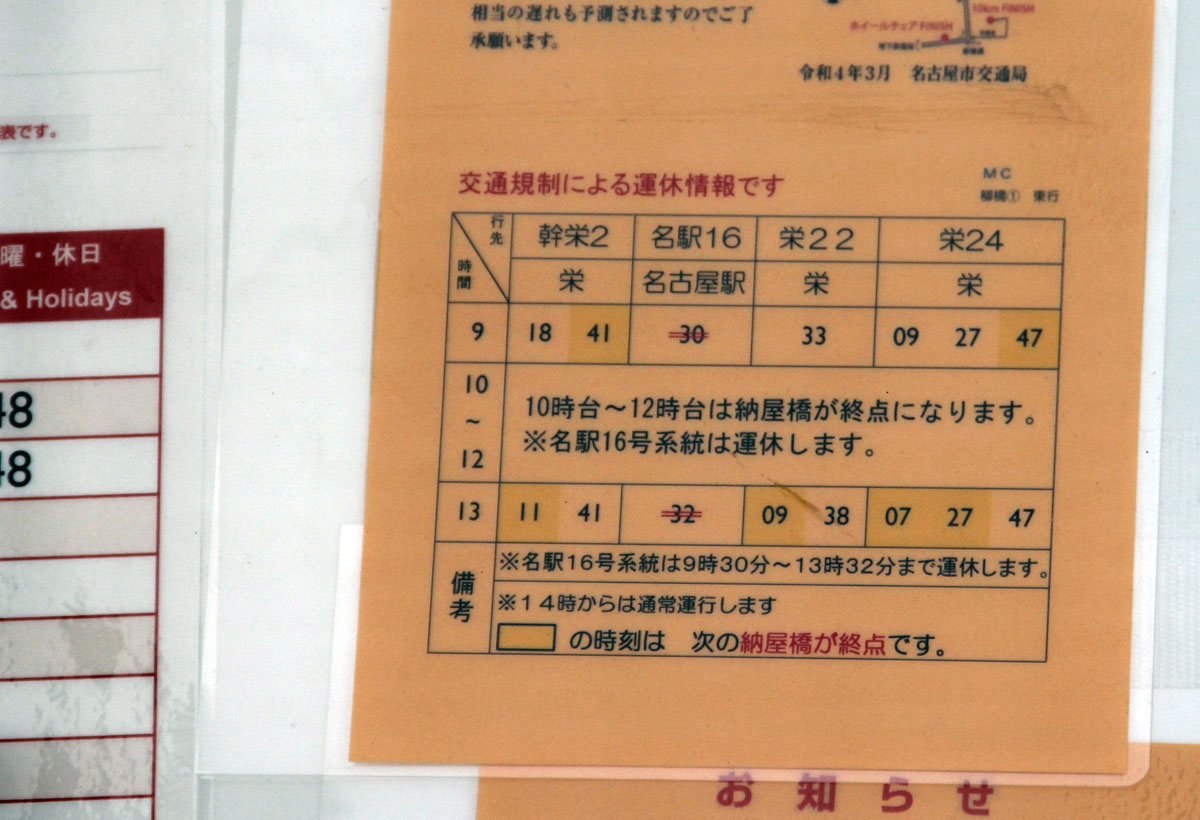 相当の遅れも予測されますのでご了
承願います。
10km FINISH
ホイールチェアFINISH
令和4年3月 名古屋市交通局
表です。
曜・休日
& Holidays
48
48
交通規制による運休情報です
MC
柳橋① 東行
行先 幹栄2 名駅16 栄22 栄24
時間 栄 名古屋駅 栄 栄
9 18 41 30 33 09 27 47
10
～
12
10時台～12時台は納屋橋が終点になります。
※名駅16号系統は運休します。
13 11 41 32 09 38 07 27 47
備考
※名駅16号系統は9時30分～13時32分まで運休します。
※14時からは通常運行します
の時刻は 次の納屋橋が終点です。
お知らせ